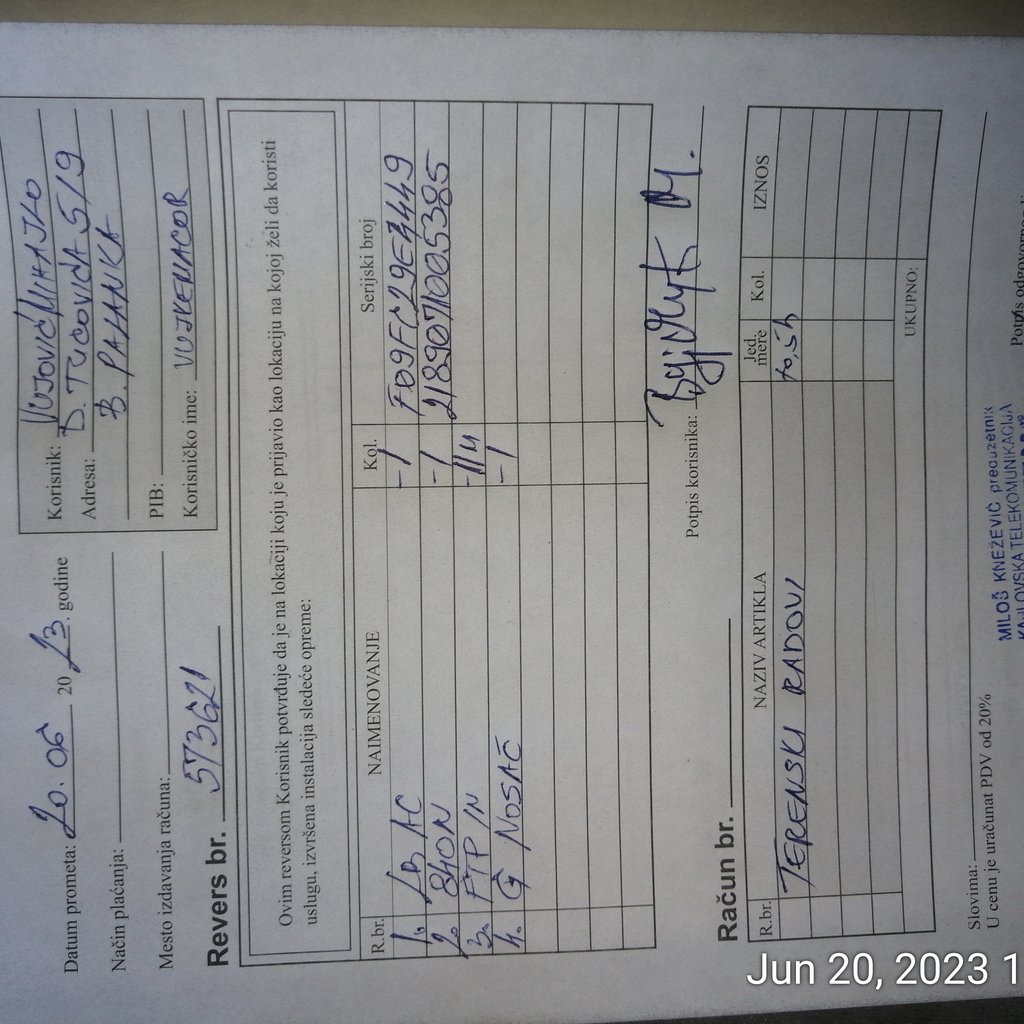 Datum prometa: 20. 06 20 23. godine
Način plaćanja:
Mesto izdavanja računa:
Korisnik: VUJOVIĆ MIHAJLO
Adresa: D. TUCOVIĆA 5/9
B. PALANKA
PIB:
Korisničko ime: VUJKEMACOR
Revers br. 573621
Ovim reversom Korisnik potvrđuje da je na lokaciji koju je prijavio kao lokaciju na kojoj želi da koristi
uslugu, izvršena instalacija sledeće opreme:
R.br. NAIMENOVANJE Kol. Serijski broj
1. LB AC -1 F09FC29E4449
2. 840N -1 2189071005385
3. FTP IN
4. G NOSAČ -1
Potpis korisnika:
Račun br.
R.br. NAZIV ARTIKLA Jed. mere Kol. IZNOS
TERENSKI RADOVI
UKUPNO:
Slovima:
U cenu je uračunat PDV od 20%
MILOŠ KNEŽEVIĆ preduzetnik
KAJLOVSKA TELEKOMUNIKACIJA
Potpis
Jun 20, 2023 1